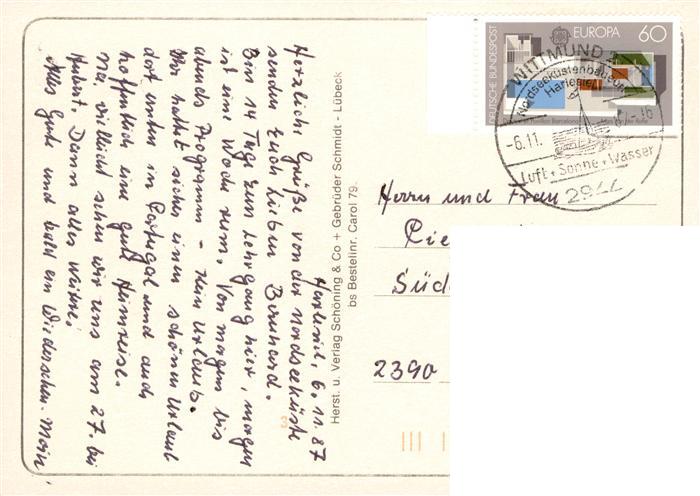 Harlesiel, 6.11.87
Herzliche Grüße von der Nordseeküste
senden Euch Lieben Bernhard.
Bin 14 Tage zum Lehrgang hier, morgen
ist eine Woche rum. Von morgens bis
abends Programm - kein Urlaub.
Ihr hattet sicher einen schönen Urlaub
dort unten in Portugal und auch
hoffentlich eine gute Heimreise.
na, vielleicht sehen wir uns am 27. bei
Hubert. Dann alles weitere!
Alles Gute und bald ein Wiedersehen. Moin
Herst. u. Verlag Schöning & Co + Gebrüder Schmidt - Lübeck
bs Bestellnr. Carol 79
DEUTSCHE BUNDESPOST
EUROPA 60
WITTMUND 2
Nordseeküstenbadeort
Harlesiel
-6.11.
-16
Luft + Sonne + Wasser
2944
Herrn und Frau
Rie
Süd
2390